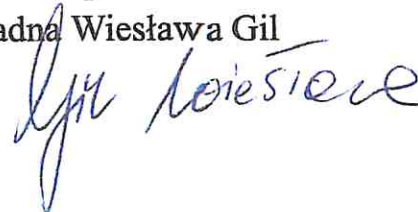 adna Wiesława Gil
Gil Wiesława